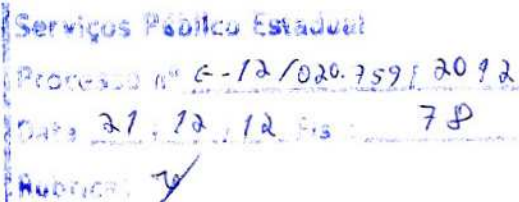 Serviços Público Estadual
Processo nº E-12/020.759/2012
Data 21/12/12 Fls: 78
Rubrica: